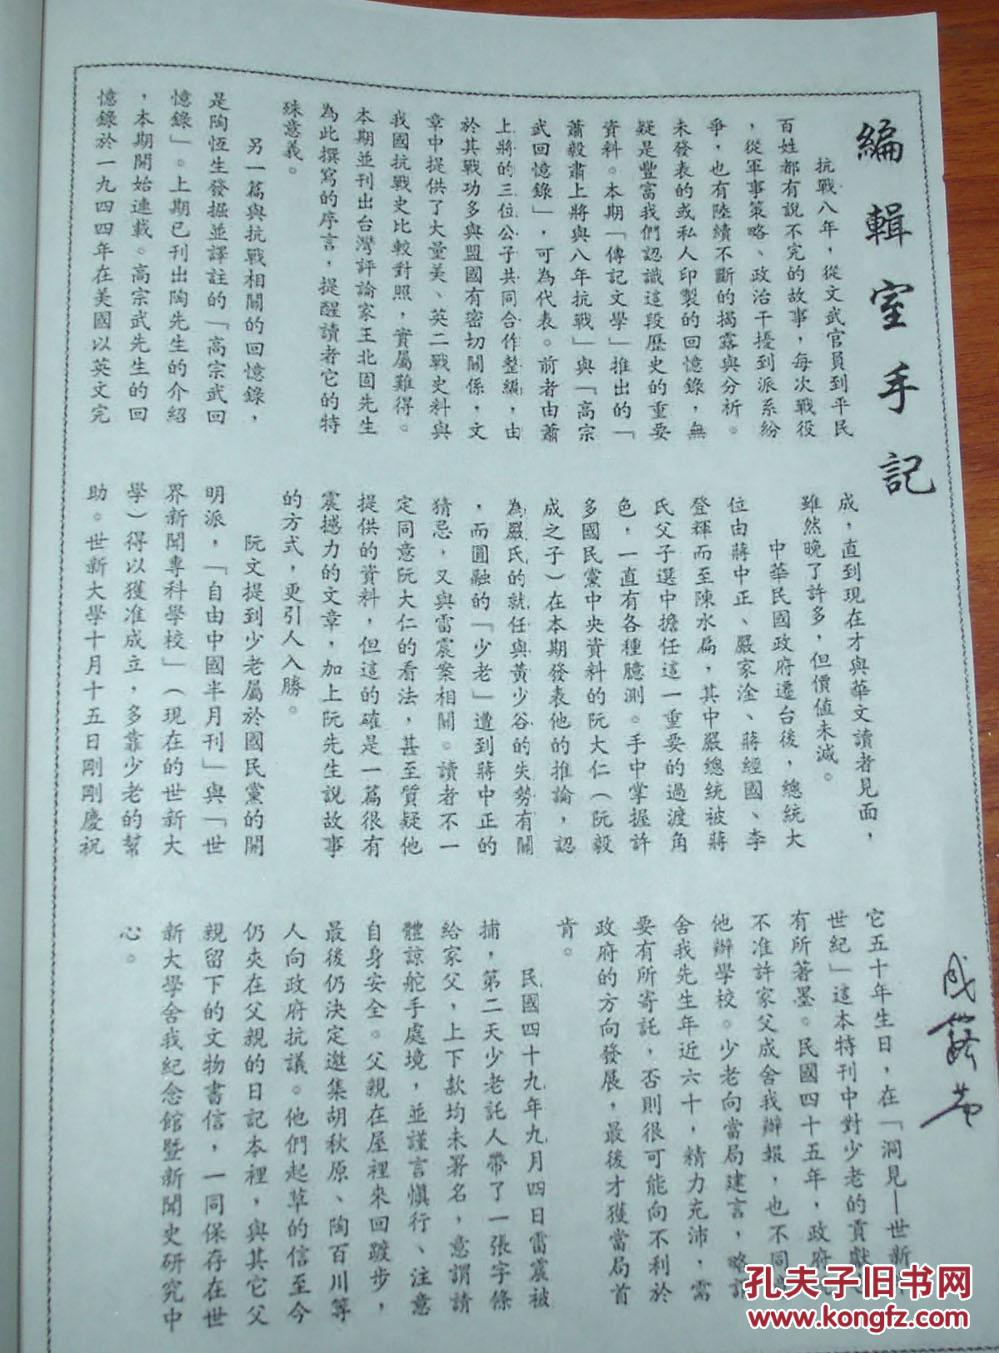 編輯室手記
抗戰八年，從文武官員到平民
百姓都有說不完的故事，每次戰役
，從軍事策略、政治干擾到派系紛
爭，也有陸續不斷的揭露與分析。
未發表的或私人印製的回憶錄，無
疑是豐富我們認識這段歷史的重要
資料。本期「傳記文學」推出的「
蕭毅肅上將與八年抗戰」與「高宗
武回憶錄」，可為代表。前者由蕭
上將的三位公子共同合作整編，由
於其戰功多與盟國有密切關係，文
章中提供了大量美、英二戰史料與
我國抗戰史比較對照，實屬難得。
本期並刊出台灣評論家王北固先生
為此撰寫的序言，提醒讀者它的特
殊意義。
另一篇與抗戰相關的回憶錄，
是陶恆生發掘並譯註的「高宗武回
憶錄」。上期已刊出陶先生的介紹
，本期開始連載。高宗武先生的回
憶錄於一九四四年在美國以英文完
成，直到現在才與華文讀者見面，
雖然晚了許多，但價值未減。
中華民國政府遷台後，總統大
位由蔣中正、嚴家淦、蔣經國、李
登輝而至陳水扁，其中嚴總統被蔣
氏父子選中擔任這一重要的過渡角
色，一直有各種臆測。手中掌握許
多國民黨中央資料的阮大仁（阮毅
成之子）在本期發表他的推論，認
為嚴氏的就任與黃少谷的失勢有關
，而圓融的「少老」遭到蔣中正的
猜忌，又與雷震案相關。讀者不一
定同意阮大仁的看法，甚至質疑他
提供的資料，但這的確是一篇很有
震撼力的文章，加上阮先生說故事
的方式，更引人入勝。
阮文提到少老屬於國民黨的開
明派，「自由中國半月刊」與「世
界新聞專科學校」（現在的世新大
學）得以獲准成立，多靠少老的幫
助。世新大學十月十五日剛剛慶祝
它五十年生日，在「洞見—世新
世紀」這本特刊中對少老的貢獻
有所著墨。民國四十五年，政府
不准許家父成舍我辦報，也不同
他辦學校。少老向當局建言，略言
舍我先生年近六十，精力充沛，需
要有所寄託，否則很可能向不利於
政府的方向發展，最後才獲當局首
肯。
民國四十九年九月四日雷震被
捕，第二天少老託人帶了一張字條
給家父，上下款均未署名，意謂請
體諒舵手處境，並謹言慎行、注意
自身安全。父親在屋裡來回踱步，
最後仍決定邀集胡秋原、陶百川等
人向政府抗議。他們起草的信至今
仍夾在父親的日記本裡，與其它父
親留下的文物書信，一同保存在世
新大學舍我紀念館暨新聞史研究中
心。
成露茜
孔夫子旧书网
www.kongfz.com